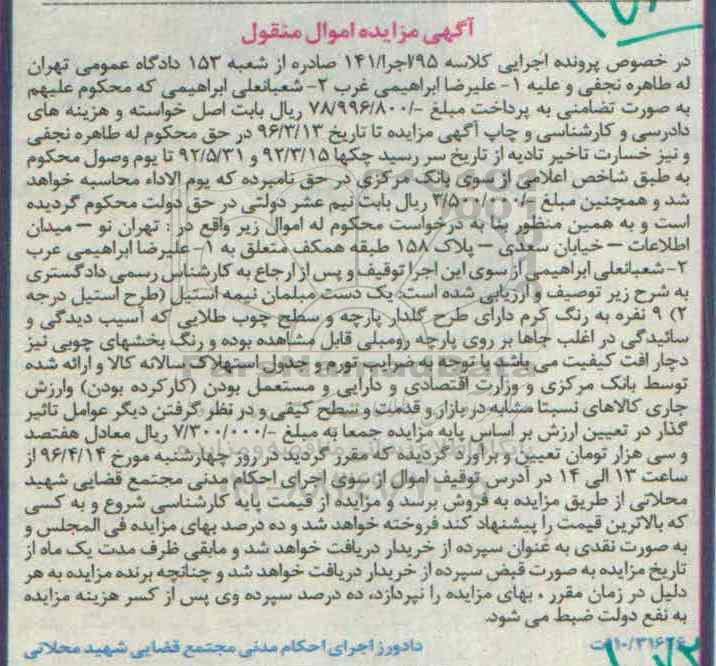 آگهی مزایده اموال منقول
در خصوص پرونده اجرایی کلاسه ۹۵/اجرا/۱۴۱ صادره از شعبه ۱۵۳ دادگاه عمومی تهران
له طاهره نجفی و علیه ۱- علیرضا ابراهیمی غرب ۲- شعبانعلی ابراهیمی که محکوم علیهم
به صورت تضامنی به پرداخت مبلغ -/۷۸/۹۹۶/۸۰۰ ریال بابت اصل خواسته و هزینه های
دادرسی و کارشناسی و چاپ آگهی مزایده تا تاریخ ۹۶/۳/۱۳ در حق محکوم له طاهره نجفی
و نیز خسارت تاخیر تادیه از تاریخ سر رسید چکها ۹۲/۳/۱۵ و ۹۲/۵/۳۱ تا یوم وصول محکوم
به طبق شاخص اعلامی از سوی بانک مرکزی در حق نامبرده که یوم الاداء محاسبه خواهد
شد و همچنین مبلغ -/۳/۵۰۰/۰۰۰ ریال بابت نیم عشر دولتی در حق دولت محکوم گردیده
است و به همین منظور بنا به درخواست محکوم له اموال زیر واقع در : تهران نو – میدان
اطلاعات – خیابان سعدی – پلاک ۱۵۸ طبقه همکف متعلق به ۱- علیرضا ابراهیمی عرب
۲- شعبانعلی ابراهیمی از سوی این اجرا توقیف و پس از ارجاع به کارشناس رسمی دادگستری
به شرح زیر توصیف و ارزیابی شده است: یک دست مبلمان نیمه استیل (طرح استیل درجه
۲) ۹ نفره به رنگ کرم دارای طرح گلدار پارچه و سطح چوب طلایی که آسیب دیدگی و
سائیدگی در اغلب جاها بر روی پارچه رومبلی قابل مشاهده بوده و رنگ بخشهای چوبی نیز
دچار افت کیفیت می باشد با توجه به ضرایب تورم و جدول استهلاک سالانه کالا و ارائه شده
توسط بانک مرکزی و وزارت اقتصادی و دارایی و مستعمل بودن (کارکرده بودن) وارزش
جاری کالاهای نسبتا مشابه در بازار و قدمت و سطح کیفی و در نظر گرفتن دیگر عوامل تاثیر
گذار در تعیین ارزش بر اساس پایه مزایده جمعا به مبلغ -/۷/۳۰۰/۰۰۰ ریال معادل هفتصد
و سی هزار تومان تعیین و برآورد گردیده که مقرر گردید در روز چهارشنبه مورخ ۹۶/۴/۱۴ از
ساعت ۱۳ الی ۱۴ در آدرس توقیف اموال از سوی اجرای احکام مدنی مجتمع قضایی شهید
محلاتی از طریق مزایده به فروش برسد و مزایده از قیمت پایه کارشناسی شروع و به کسی
که بالاترین قیمت را پیشنهاد کند فروخته خواهد شد و ده درصد بهای مزایده فی المجلس و
به صورت نقدی به عنوان سپرده از خریدار دریافت خواهد شد و مابقی ظرف مدت یک ماه از
تاریخ مزایده به صورت قبض سپرده از خریدار دریافت خواهد شد و چنانچه برنده مزایده به هر
دلیل در زمان مقرر ، بهای مزایده را نپردازد، ده درصد سپرده وی پس از کسر هزینه مزایده
به نفع دولت ضبط می شود.
دادورز اجرای احکام مدنی مجتمع قضایی شهید محلاتی